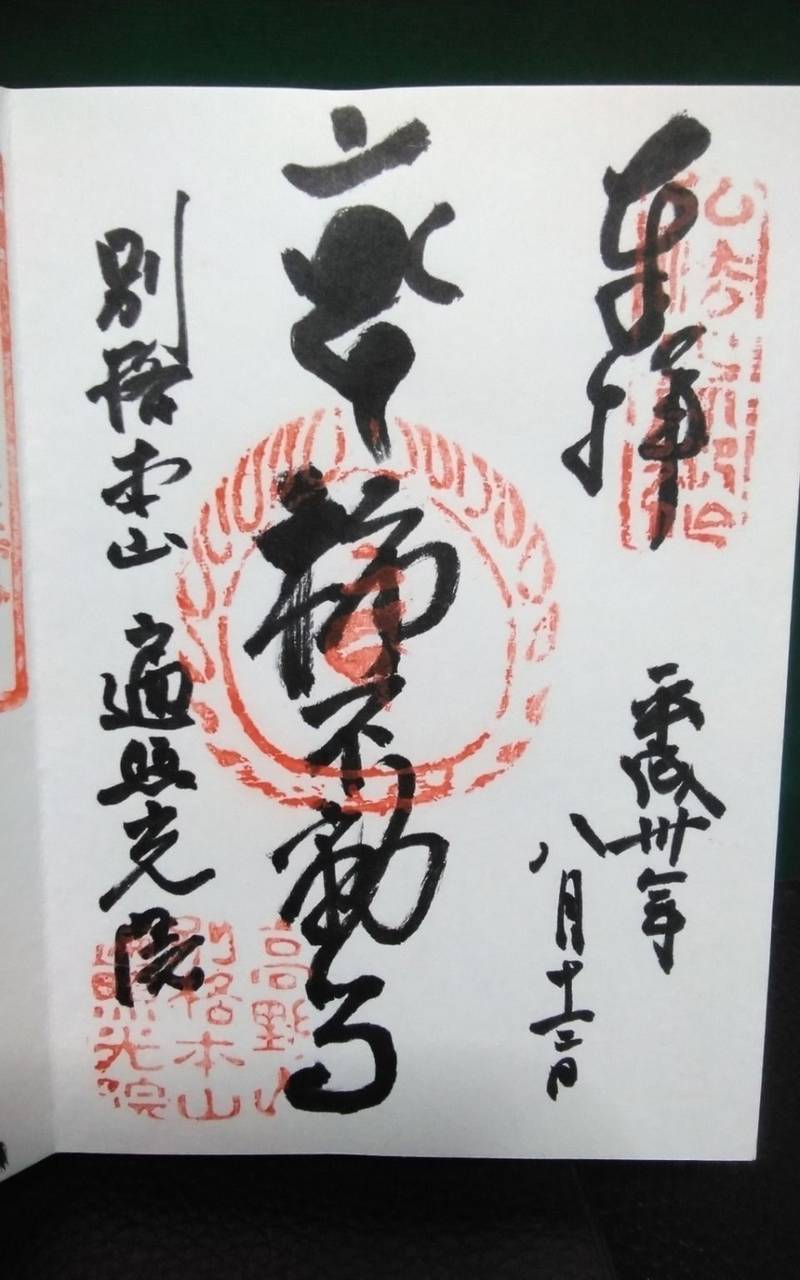 奉拝
平成卅年
八月十二日
柿不動尊
別格本山 遍照光院
高野山
別格本山
照光院